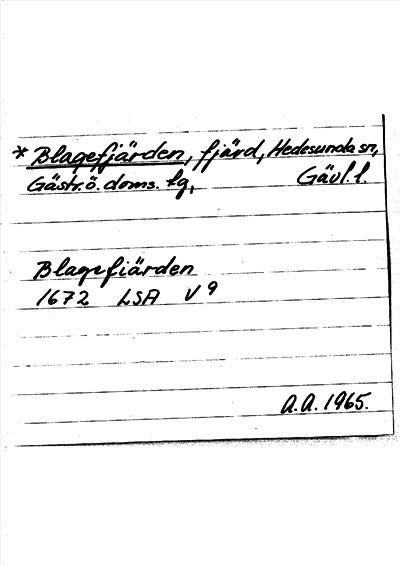 * Blagefjärden, fjärd, Hedesunda sn,
Gästr.ö.doms. tg, Gävl.l.
Blagefiärden
1672 LSA V 9
A.A. 1965.